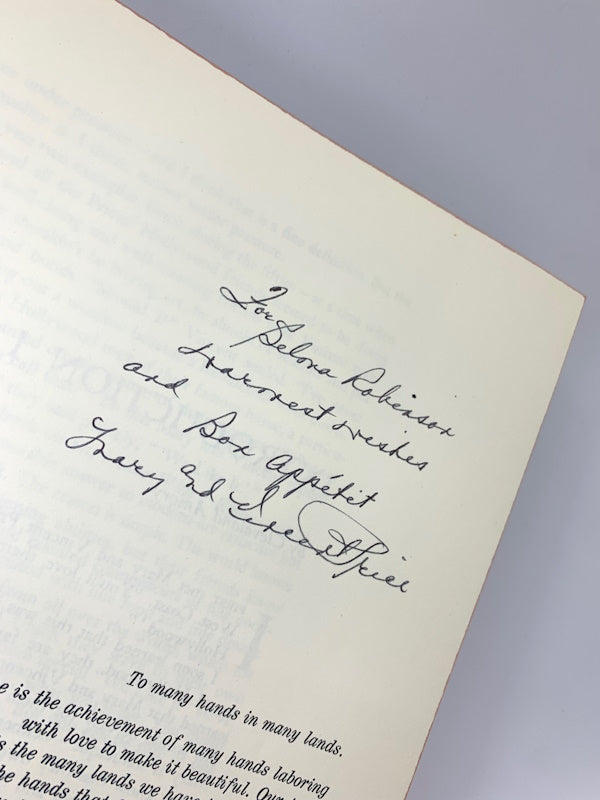 For
Delora Robinson
warmest wishes
and Bon Appétit
Mary and Vincent Price
To many hands in many lands.
e is the achievement of many hands laboring
with love to make it beautiful. Our
s the many lands we have
he hands that